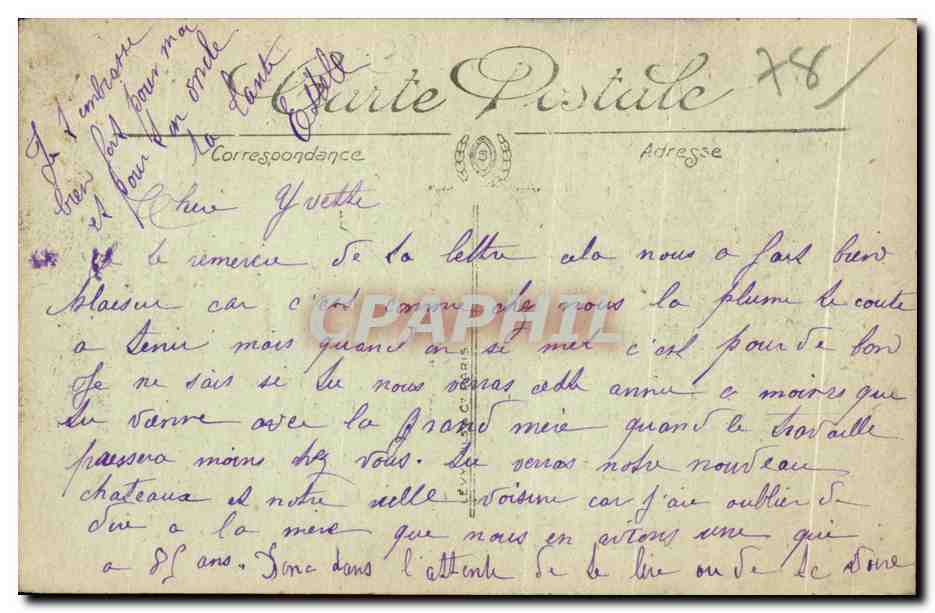 78
Carte Postale
Correspondance
Adresse
Chere Yvette
Je te remercie de ta lettre cela nous a fait bien
plaisir car c'est comme chez nous la plume te coute
a tenir mais quand on si met c'est pour de bon
Je ne sait si tu nous verras cette annee a moins que
tu vienne avec ta grand mere quand le travaille
pressera moins chez vous. Tu verras notre nouveau
chateaux et notre vielle voisine car j'ai oublier de
dire a ta mere que nous en avions une qui
a 85 ans. Donc dans l'attente de te lire ou de te voire
Je t'embrasse
bien fort pour moi
et pour ton oncle
ta tante
Estelle
LEVY PARIS
CPAPHIL